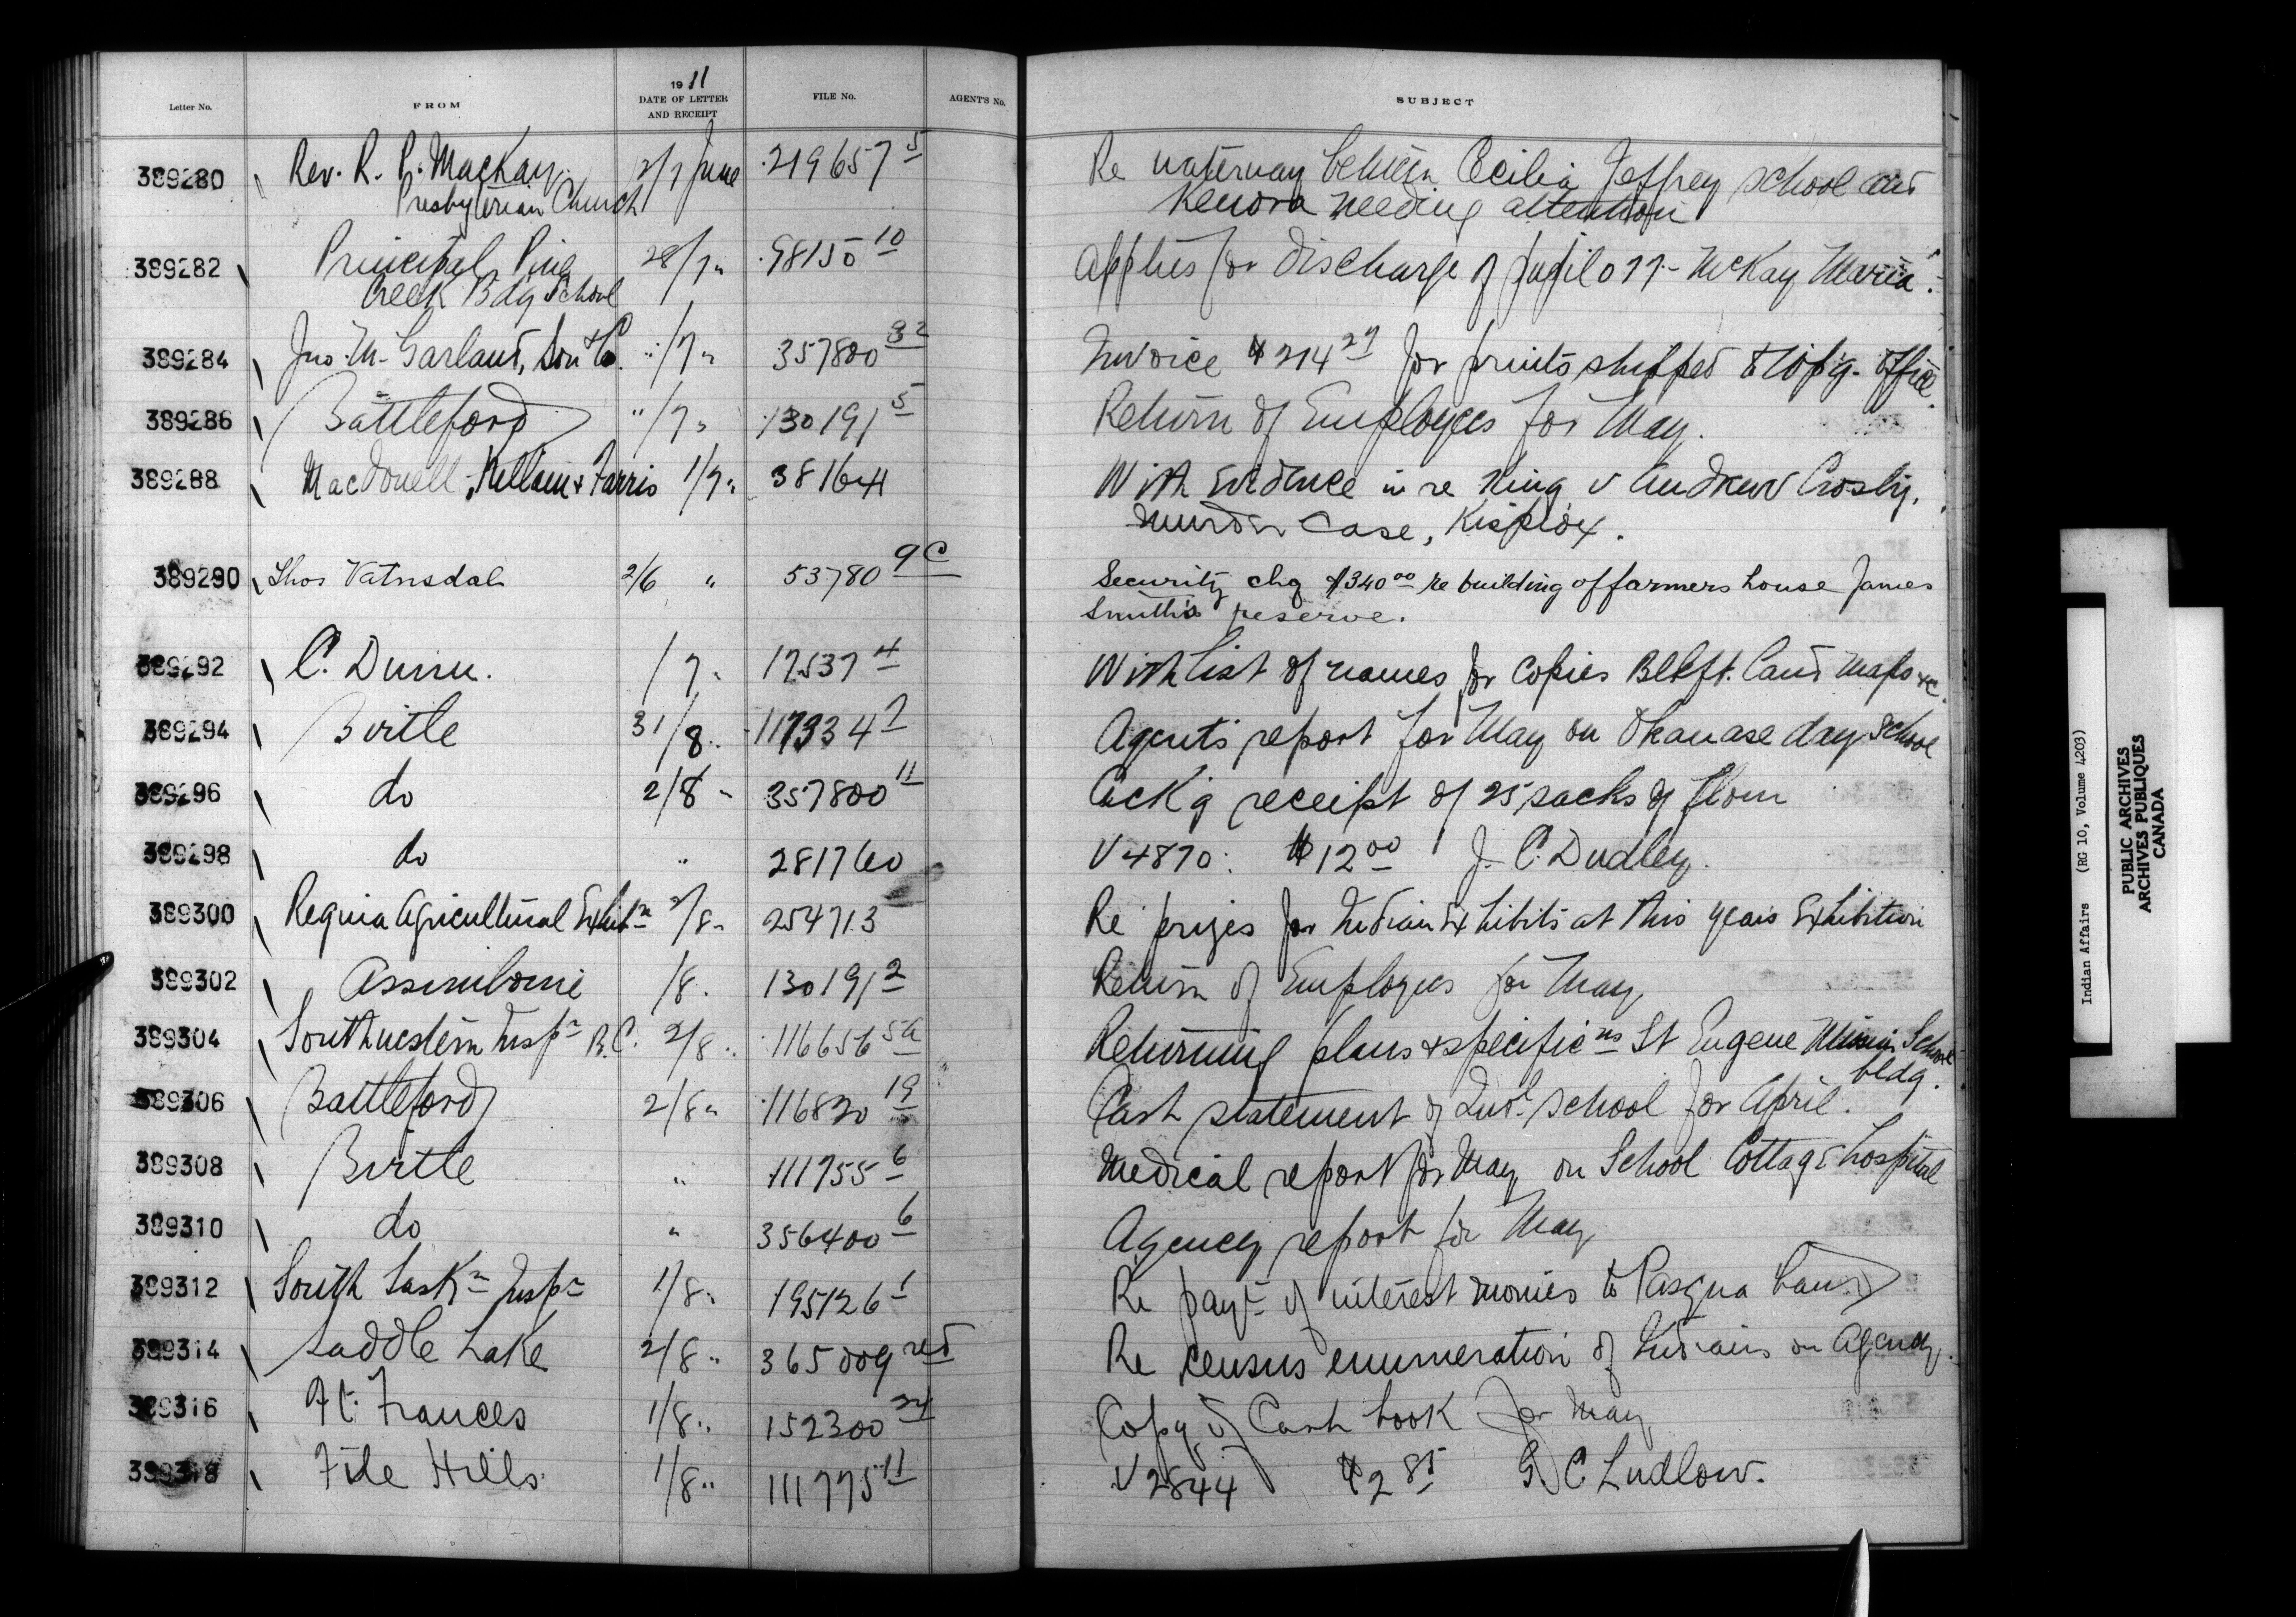 Letter No. FROM 1911 DATE OF LETTER AND RECEIPT FILE No. AGENT'S No. SUBJECT
389280 Rev. R. P. MacKay 2/7 June 219657 5 Re waterway between Cecilia Jeffrey school and
Presbyterian Church Kenora needing attention
389282 Principal Pine 28/7 " 98150 10 Applies for discharge of pupil 077 - McKay Maria.
Creek Bdg School
389284 Jno. M. Garland, Son & Co. " /7 " 357800 32 Invoice $214 27 for prints shipped to Wpg. Office.
389286 Battleford " /7 " 130191 5 Return of Employees for May.
389288 MacDonell, Killam & Farris 1/7 " 381644 With Evidence in re King v Andrew Crosby,
murder case, Kispiox.
389290 Thos Vatnsdal 2/6 " 53780 9C Security chq $340 00 re building of farmers house James
Smith's reserve.
389292 C. Dunn. /7 " 17537 4 With list of names for copies Blkft. Land maps &c.
389294 Birtle 31/8 " 117334 7 Agent's report for May on Okanase day school
389296 do 2/8 " 357800 11 Ack'g receipt of 25 sacks of flour
389298 do " 281760 V 4870: $12 00 J. C. Dudley.
389300 Regina Agricultural Exhibn 2/8 " 254713 Re prizes for Indian Exhibits at this years Exhibition
389302 Assiniboine /8 " 130191 2 Return of Employees for May,
389304 Southwestern Inspr B.C. 2/8 " 116656 5a Returning plans & specificns St Eugene Mission School
bldg.
389306 Battleford 2/8 " 116820 19 Cash statement of Indl. School for April.
389308 Birtle " 111755 6 Medical report for May on School Cottage hospital
389310 do " 356400 6 Agency report for May
389312 South Saskn Inspr 1/8 " 195126 1 Re payt of interest monies to Pasqua band
389314 Saddle Lake 2/8 " 365009 red Re census enumeration of Indians on Agency.
389316 Ft. Frances 1/8 " 152300 24 Copy of Cash book for May
389318 File Hills 1/8 " 111775 11 V 2844 $2 85 G. C. Ludlow.
Indian Affairs (RG 10, Volume 4203)
PUBLIC ARCHIVES
ARCHIVES PUBLIQUES
CANADA